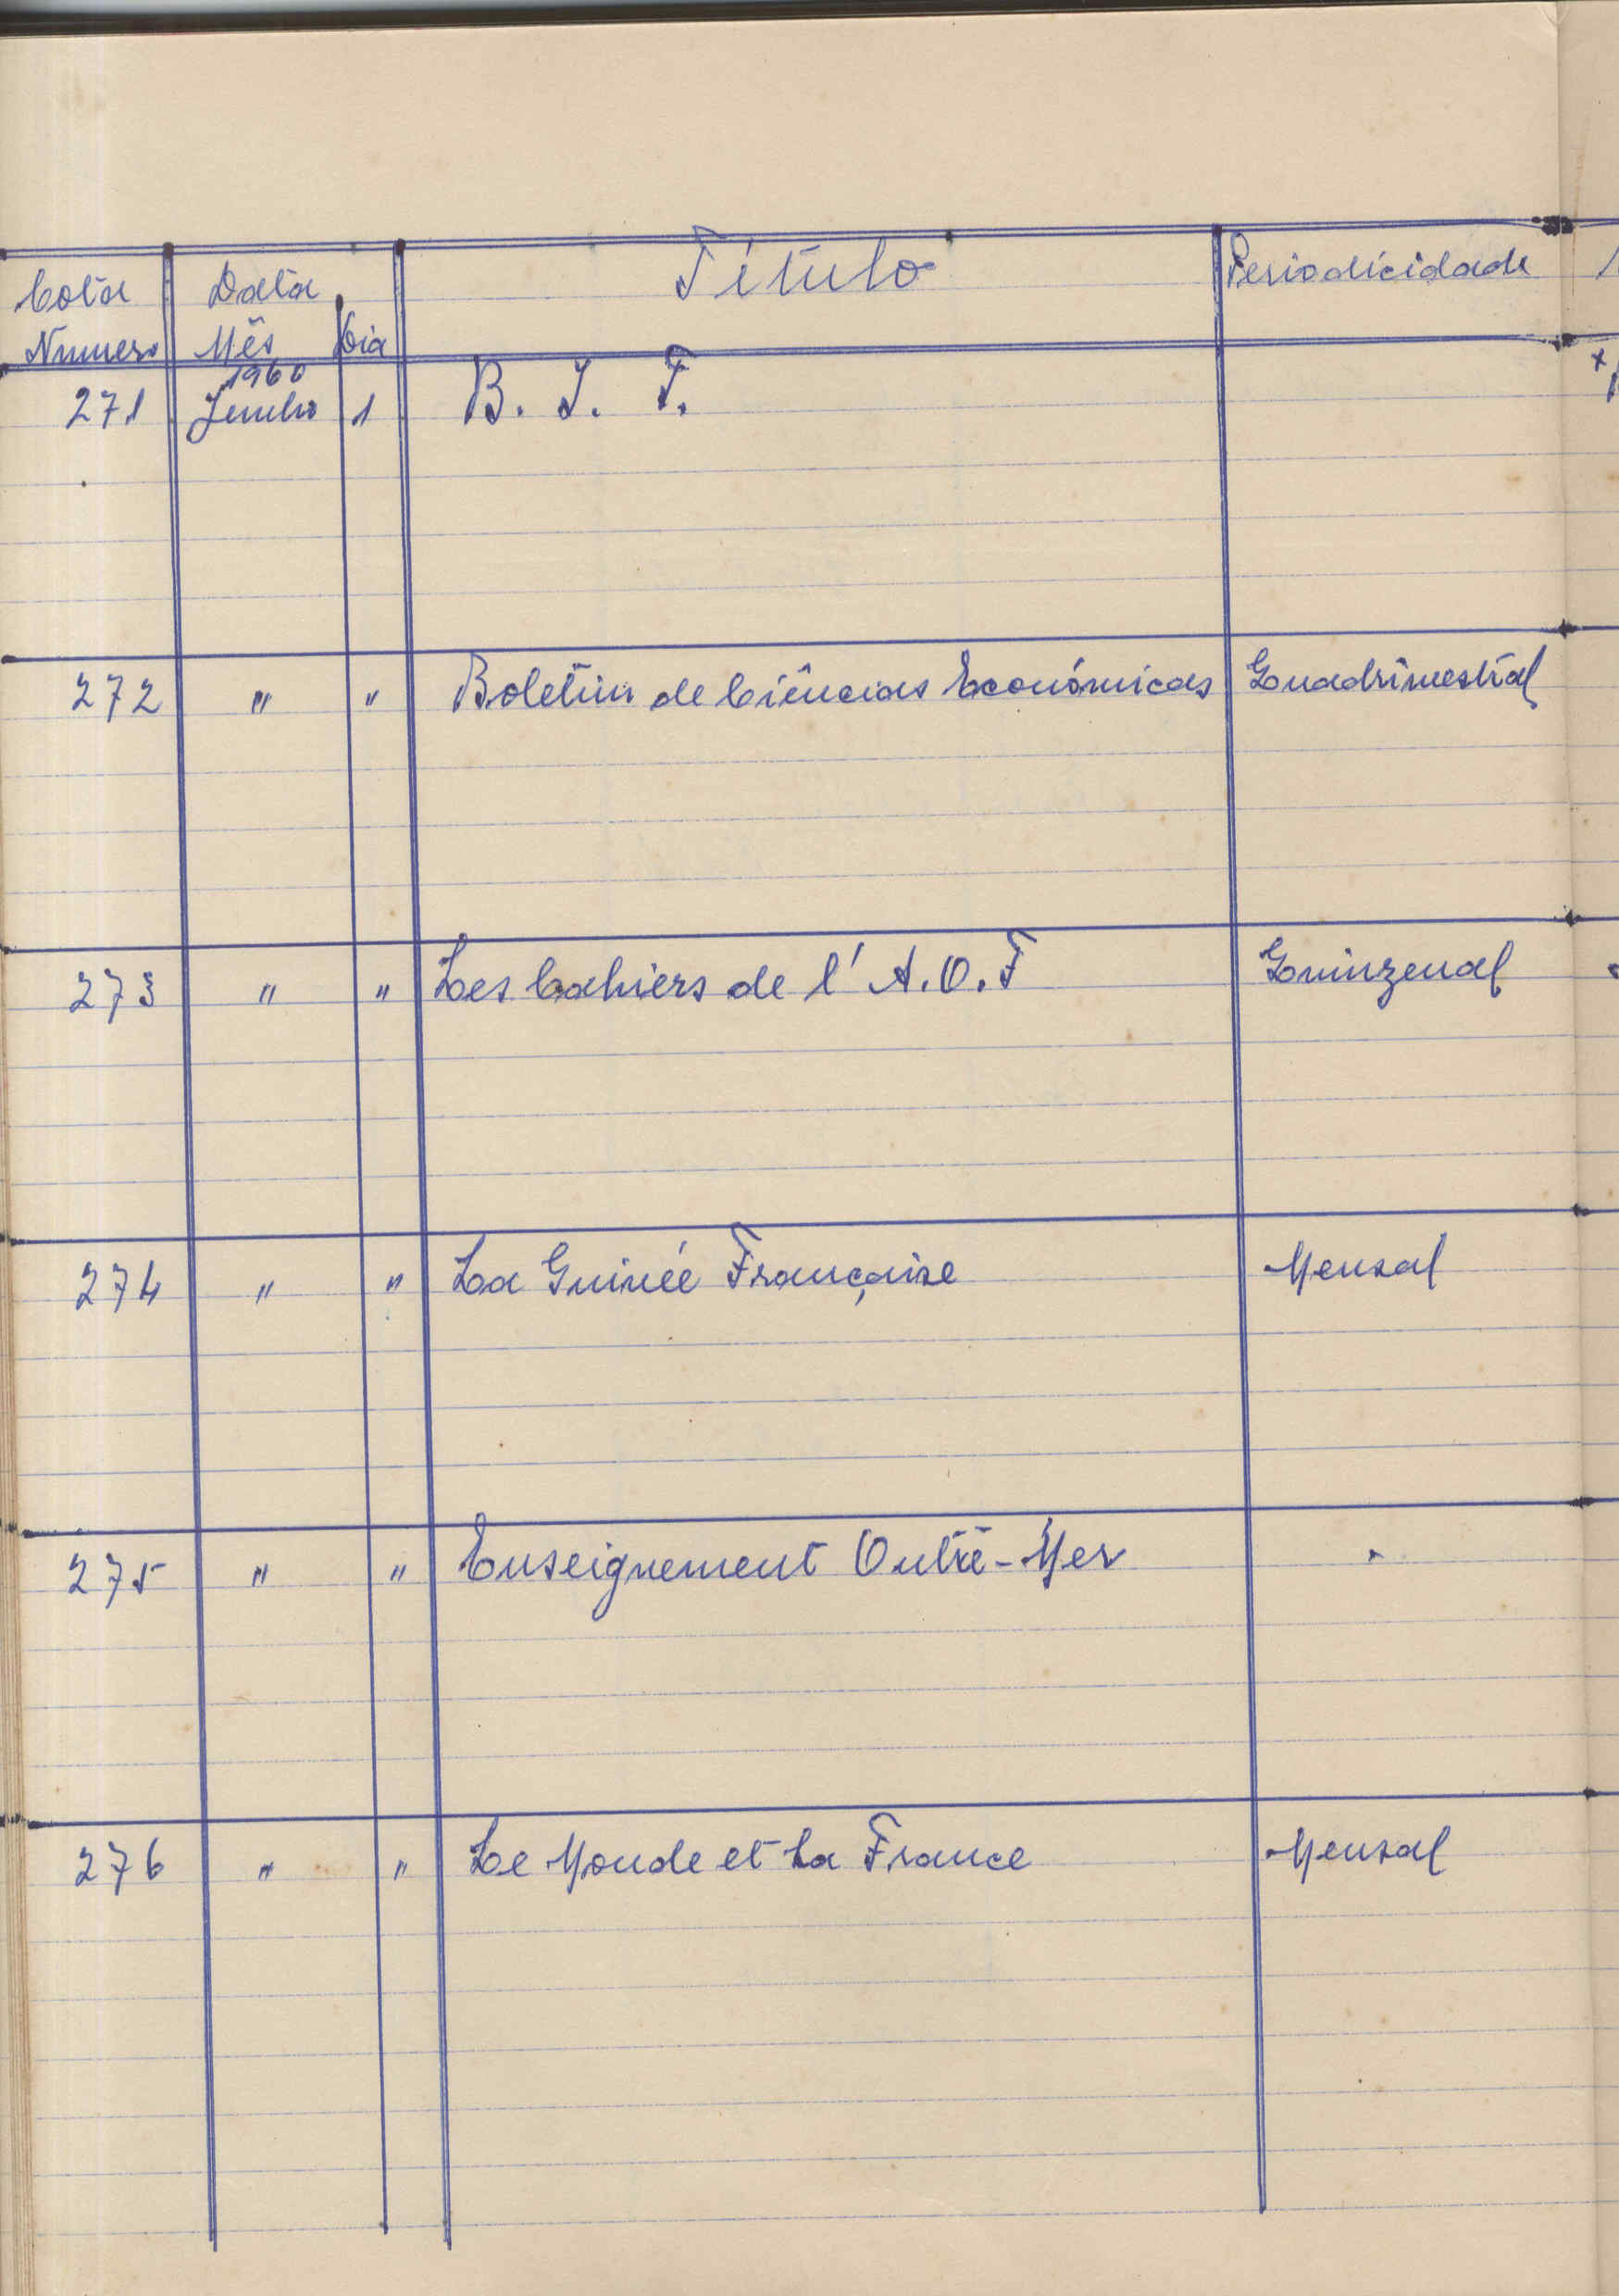 Cota Data Título Periodicidade
Numero Mês Dia
1960
271 Junho 1 B. I. T.
272 " " Boletim de Ciências Económicas Quadrimestral
273 " " Les Cahiers de l' A.O.F Quinzenal
274 " " La Guinée Française Mensal
275 " " Enseignement Outre-Mer
276 " " Le Monde et La France Mensal